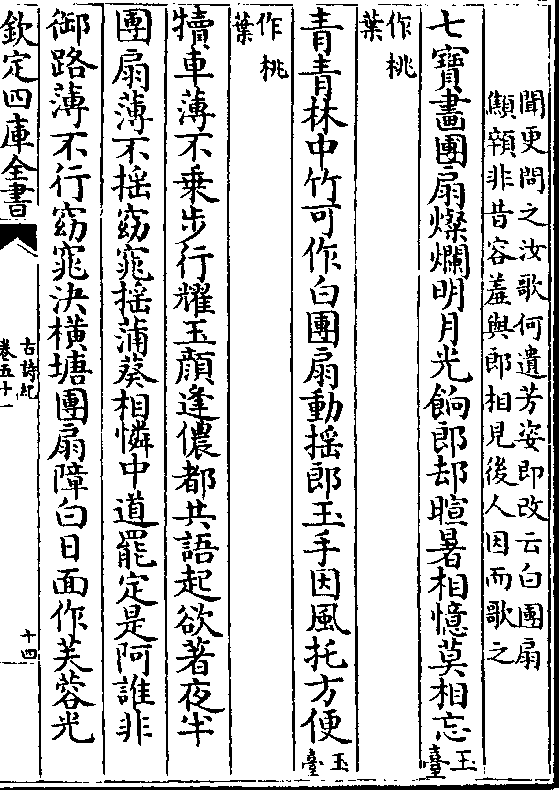 聞更問之汝歌何遺芳姿即改云白團扇
顦顇非昔容羞與郎相見後人因而歌之
七寶畫團扇燦爛明月光餉郎却暄暑相憶莫相忘玉臺
作桃
葉
青青林中竹可作白團扇動揺郎玉手因風托方便玉臺
作桃
葉
犢車薄不乗步行耀玉顔逢儂都共語起欲著夜半
團扇薄不揺窈窕揺蒲葵相憐中道罷定是阿誰非
御路薄不行窈窕決橫塘團扇障白日面作芙蓉光
欽定四庫全書
古詩紀
卷五十一
十四